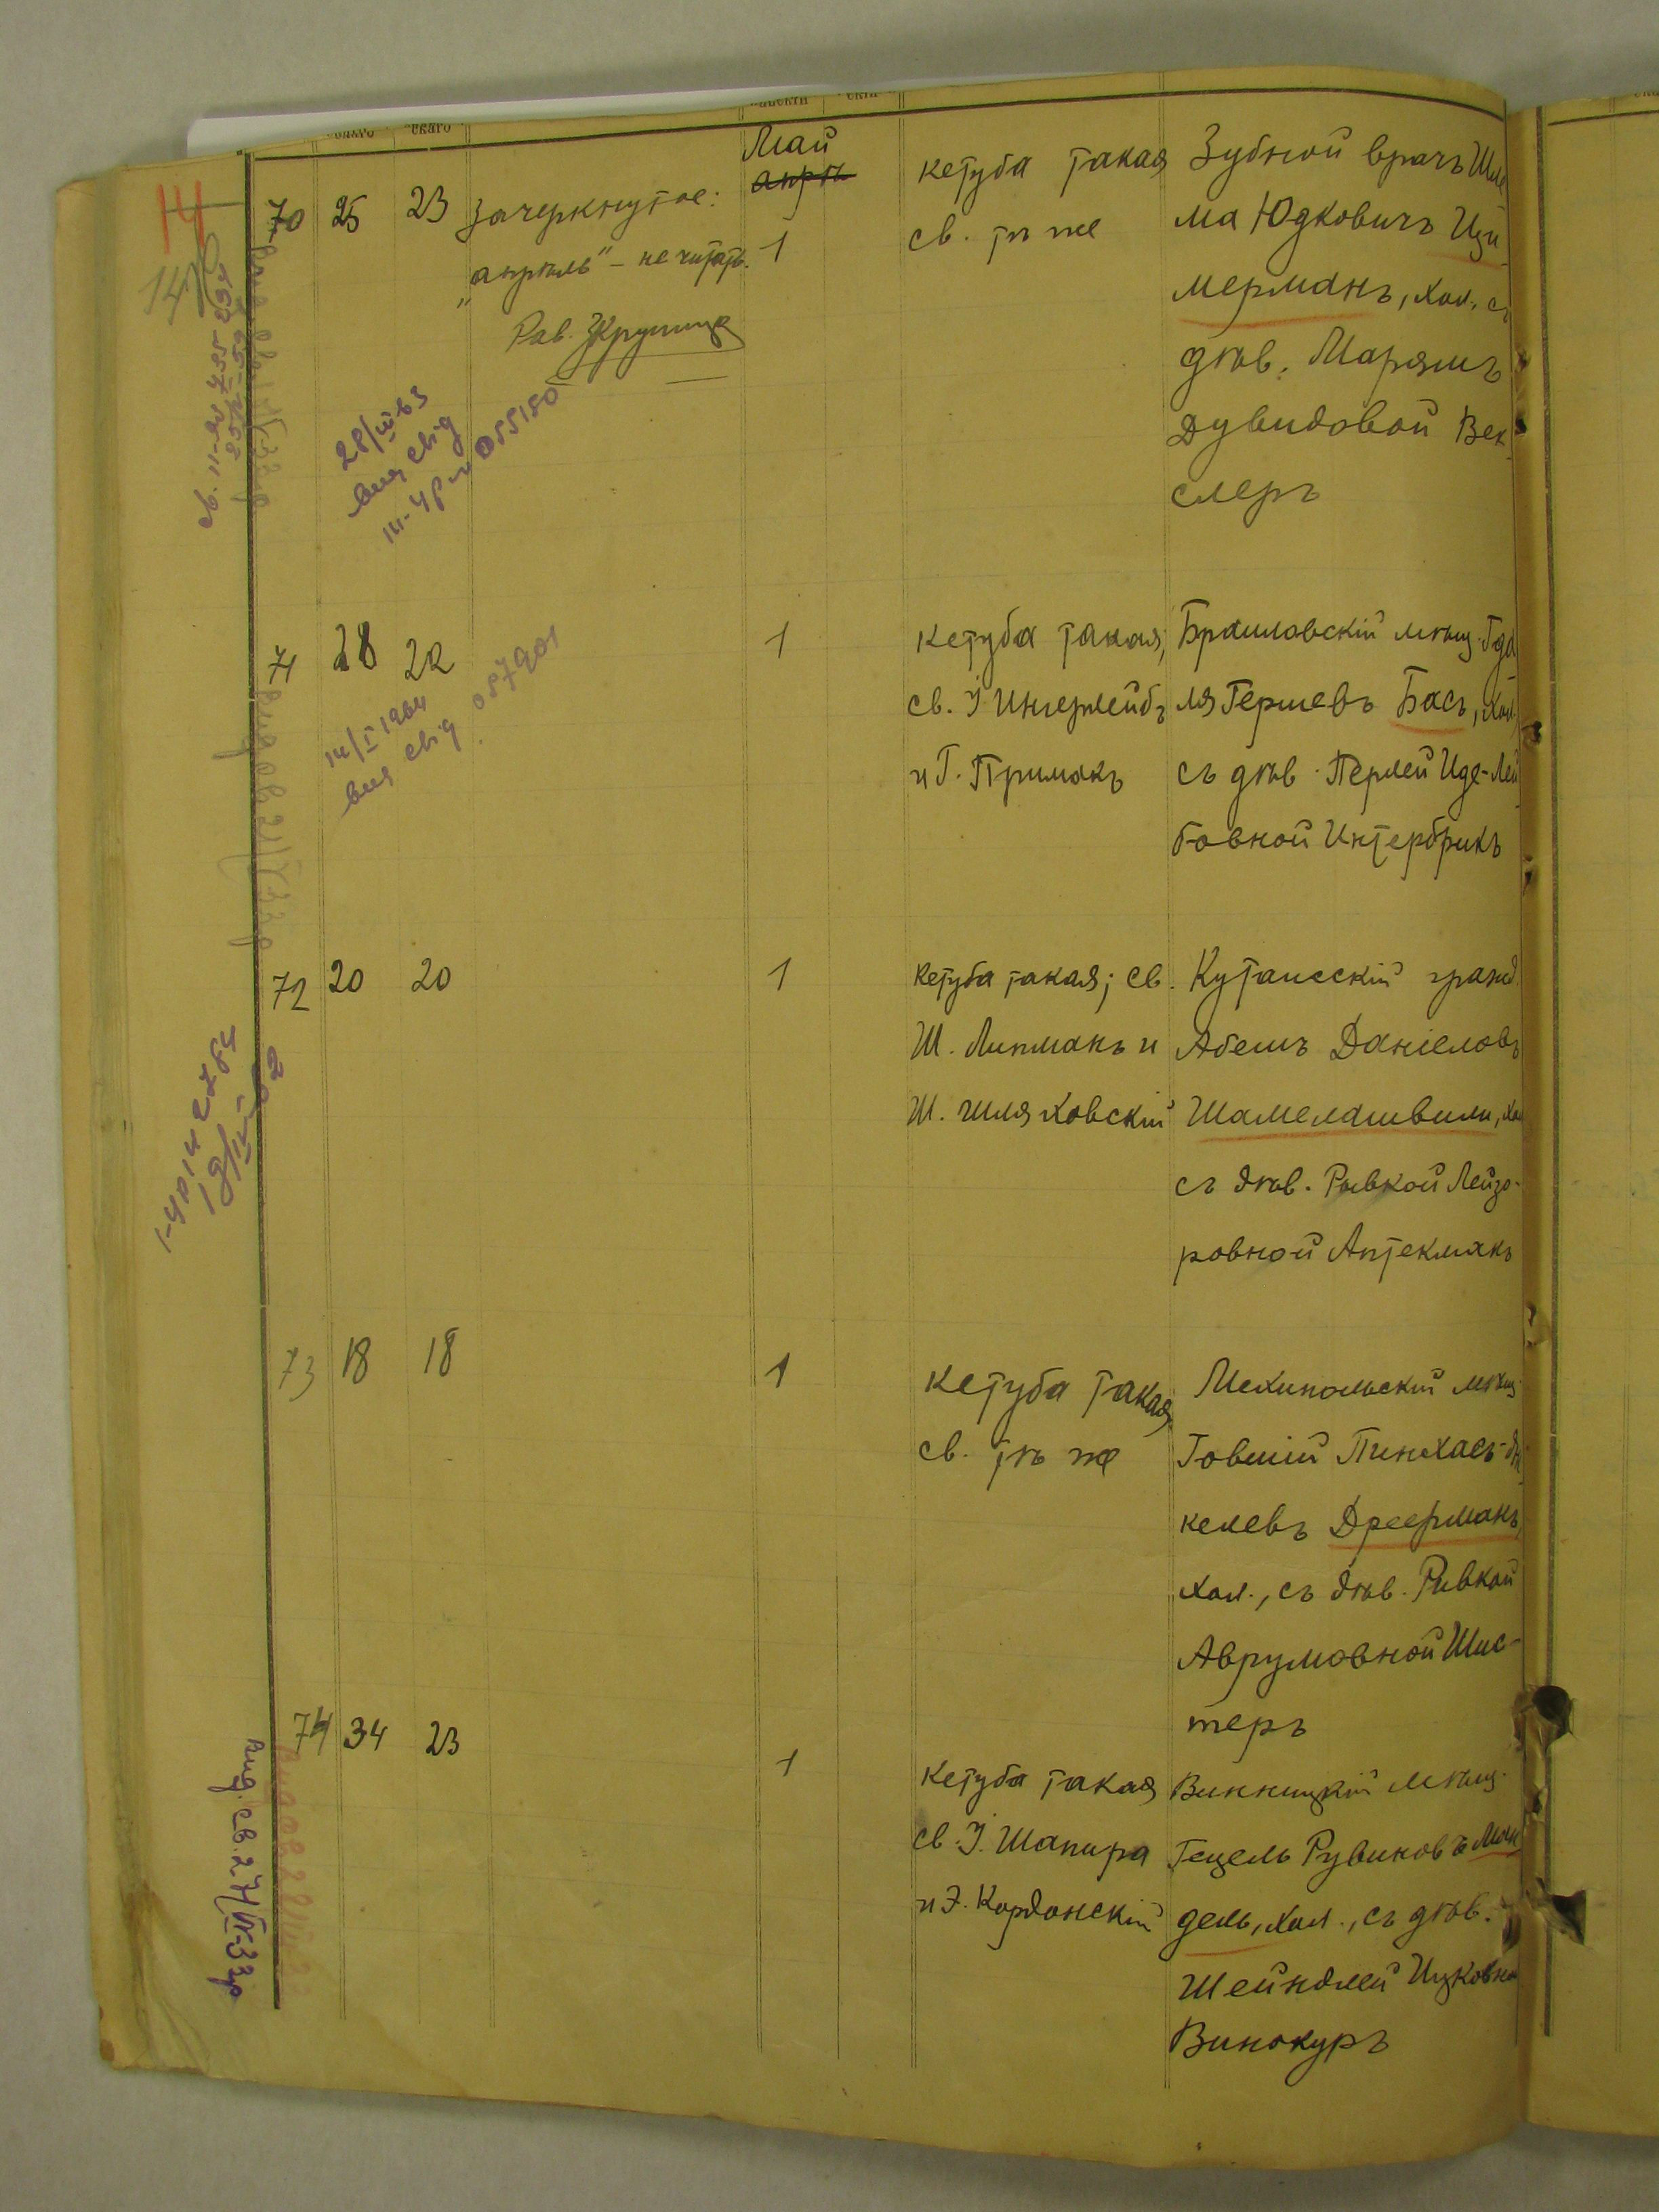 14
70 25 23
Зачеркнутое:
"апрѣль" – не читать.
Май
апрѣ
1
Кетуба такая
св. тѣ же
Зубной врачъ Шле
ма Юдковичъ Ци
мерманъ, хол. съ
дѣв. Марьямъ
Дувидовой Век
слеръ
28/III-63
055150
71 28 22
1
Кетуба такая,
св. І Ингерлейбъ
и Г. Примакъ
Браиловскій мѣщ. Гда
ля Гершевъ Басъ, хол.
съ дѣв. Перлей Иде-Лей
бовной Интербрикъ
14/I 1964
057901
72 20 20
1
Кетуба такая; св.
Ш. Липманъ и
Ш. Шляховскій
Кутаисскій гражд.
Абемъ Даніеловъ
Шамелашвили, хол
съ дѣв. Рывкой Лейзо-
ровной Аптекманъ
73 18 18
1
Кетуба такая
св. тѣ же
Мехипольскій мѣщ.
Говшій Пинхасъ-
келевъ Дреерманъ
хол., съ дѣв. Ривкой
Аврумовной Шис-
теръ
74 34 23
1
Кетуба такая
св. І. Шапира
и Э. Кордонскій
Винницкій мѣщ.
Гецель Рувиновъ Ман
дель, хол., съ дѣв.
Шейндлей Ицковно
Винокуръ
вид. св. 27/VI-33р